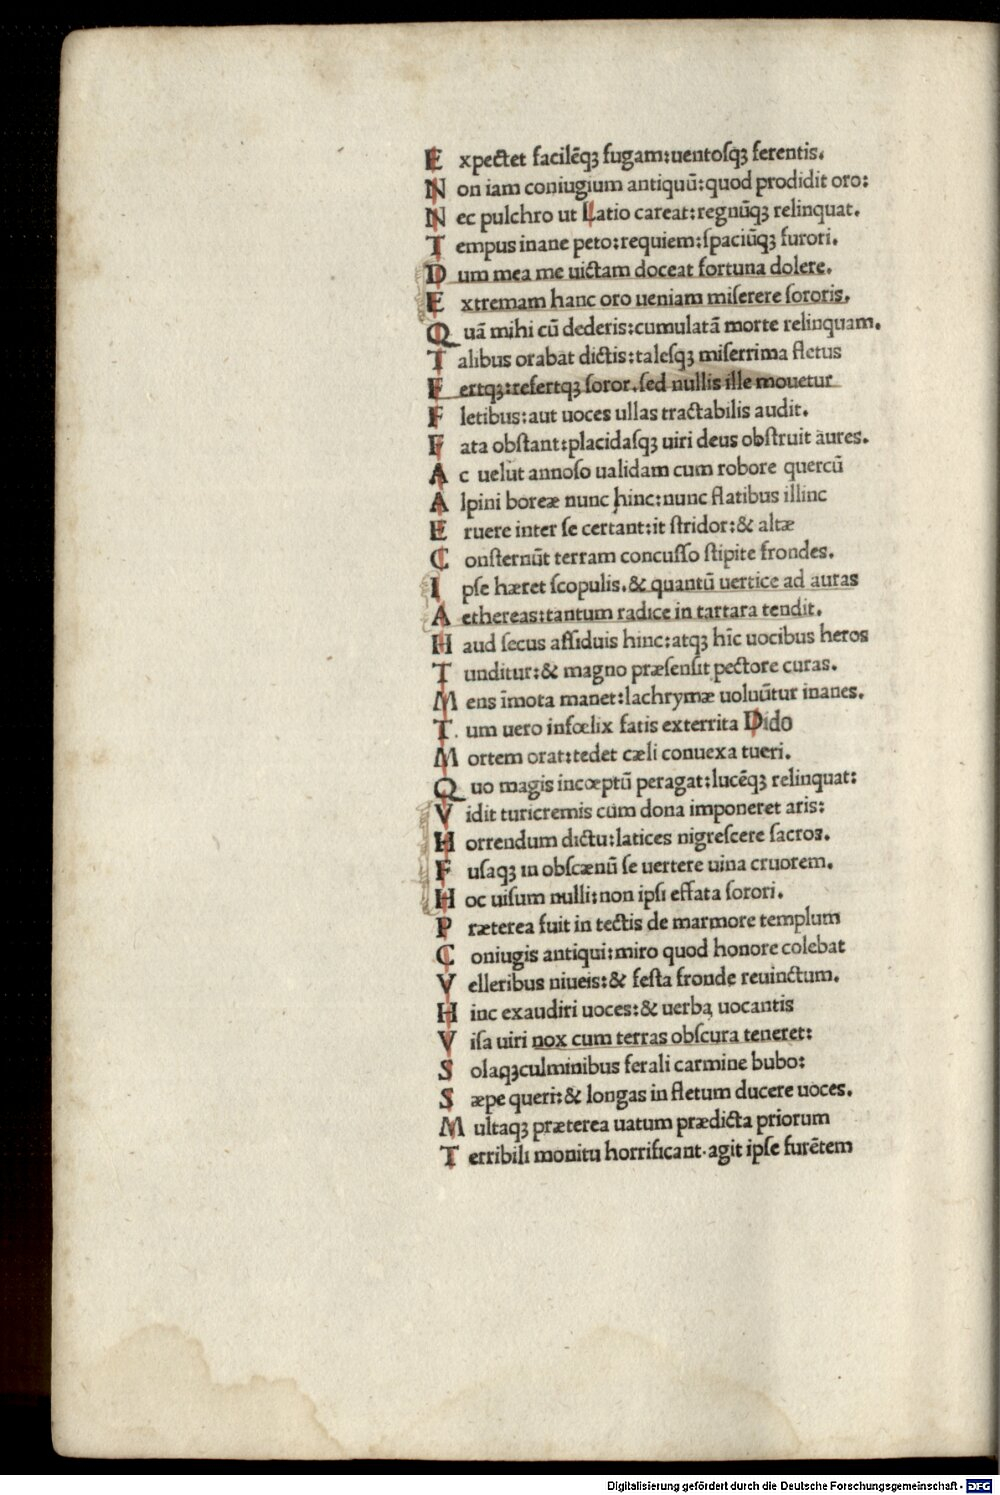 E xpectet facilēqꝫ fugam:uentoſqꝫ ferentis.
N on iam coniugium antiquū:quod prodidit oro:
N ec pulchro ut Latio careat:regnūqꝫ relinquat.
T empus inane peto:requiem:ſpaciūqꝫ furori.
D um mea me uictam doceat fortuna dolere.
E xtremam hanc oro ueniam miſerere ſororis.
Q uā mihi cū dederis:cumulatā morte relinquam.
T alibus orabat dictis:taleſqꝫ miſerrima fletus
F ertqꝫ:refertqꝫ ſoror.ſed nullis ille mouetur
F letibus:aut uoces ullas tractabilis audit.
F ata obſtant:placidaſqꝫ uiri deus obſtruit aures.
A c uelut annoſo ualidam cum robore quercū
A lpini boreæ nunc hinc:nunc flatibus illinc
E ruere inter ſe certant:it ſtridor:& altæ
C onſternūt terram concuſſo ſtipite frondes.
I pſe hæret ſcopulis.& quantū uertice ad auras
A ethereas:tantum radice in tartara tendit.
H aud ſecus aſſiduis hinc:atqꝫ hīc uocibus heros
T unditur:& magno præſenſit pectore curas.
M ens īmota manet:lachrymæ uoluūtur inanes.
T um uero infœlix fatis exterrita Dido
M ortem orat:tedet cæli conuexa tueri.
Q uo magis incœptū peragat:lucēqꝫ relinquat:
V idit turicremis cum dona imponeret aris:
H orrendum dictu:latices nigreſcere ſacros.
F uſaqꝫ in obſcænū ſe uertere uina cruorem.
H oc uiſum nulli:non ipſi effata ſorori.
P ræterea fuit in tectis de marmore templum
C oniugis antiqui:miro quod honore colebat
V elleribus niueis:& feſta fronde reuinctum.
H inc exaudiri uoces:& uerba uocantis
V iſa uiri nox cum terras obſcura teneret:
S olaqꝫculminibus ferali carmine bubo:
S æpe queri:& longas in fletum ducere uoces.
M ultaqꝫ præterea uatum prædicta priorum
T erribili monitu horrificant.agit ipſe furētem
Digitalisierung gefördert durch die Deutsche Forschungsgemeinschaft - DFG